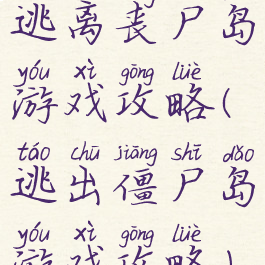 逃离丧尸岛
yóu xì gōng lüè
游戏攻略(
táo chū jiāng shī dǎo
逃出僵尸岛
yóu xì gōng lüè
游戏攻略)